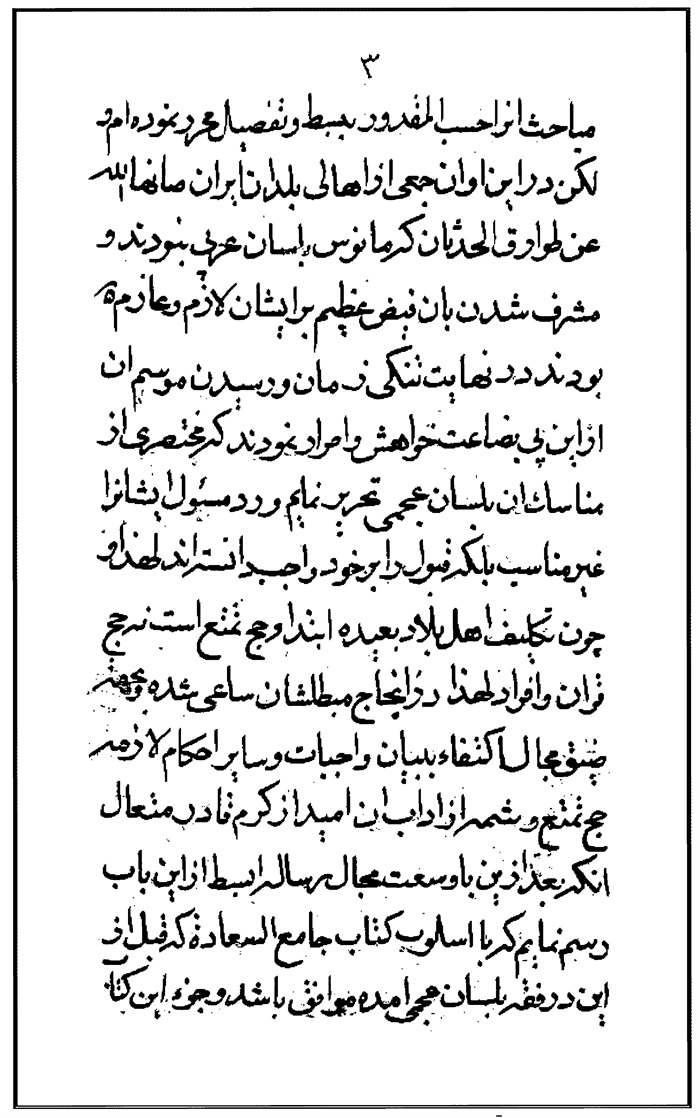 ۳
مباحث انرا حسب المقدور ببسط و تفصیل محرر نموده ام و
لکن در این اوان جمعی از اهالی بلدان ایران صانها الله
عن طوارق الحدثان که مانوس بلسان عربی نبودند و
مشرف شدن بان فیض عظیم بر ایشان لازم و عازم
بودند در نهایت تنکی زمان و رسیدن موسم ان
از این بی بضاعت خواهش و اصرار نمودند که مختصری از
مناسک ان بلسان عجمی تحریر نمایم و رد مسئول ایشانرا
غیر مناسب بلکه قبول را بر خود واجب دانسته اند لهذا و
چون تکلیف اهل بلاد بعیده ابتداء حج تمتع است نه حج
قران و افراد لهذا در انجاح مطلبشان ساعی شده بجهة
ضیق مجال اکتفاء ببیان واجبات و سایر احکام لازمه
حج تمتع و شمه از اداب ان امید از کرم قادر متعال
انکه بعد ازین با وسعت مجال رساله ابسط از این باب
رسم نمایم که با اسلوب کتاب جامع السعادة که قبل از
این در فقه بلسان عجمی امده موافق باشد و جزء این کتاب